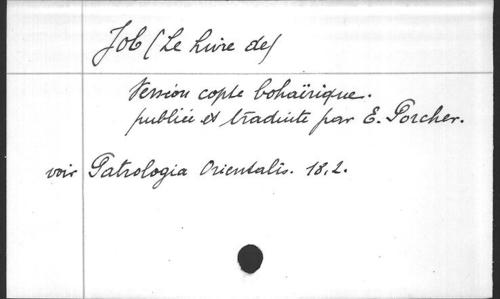 Job (Le livre de)
Version copte bohaïrique.
publiée et traduite par E. Porcher.
voir Patrologia Orientalis. 18,2.